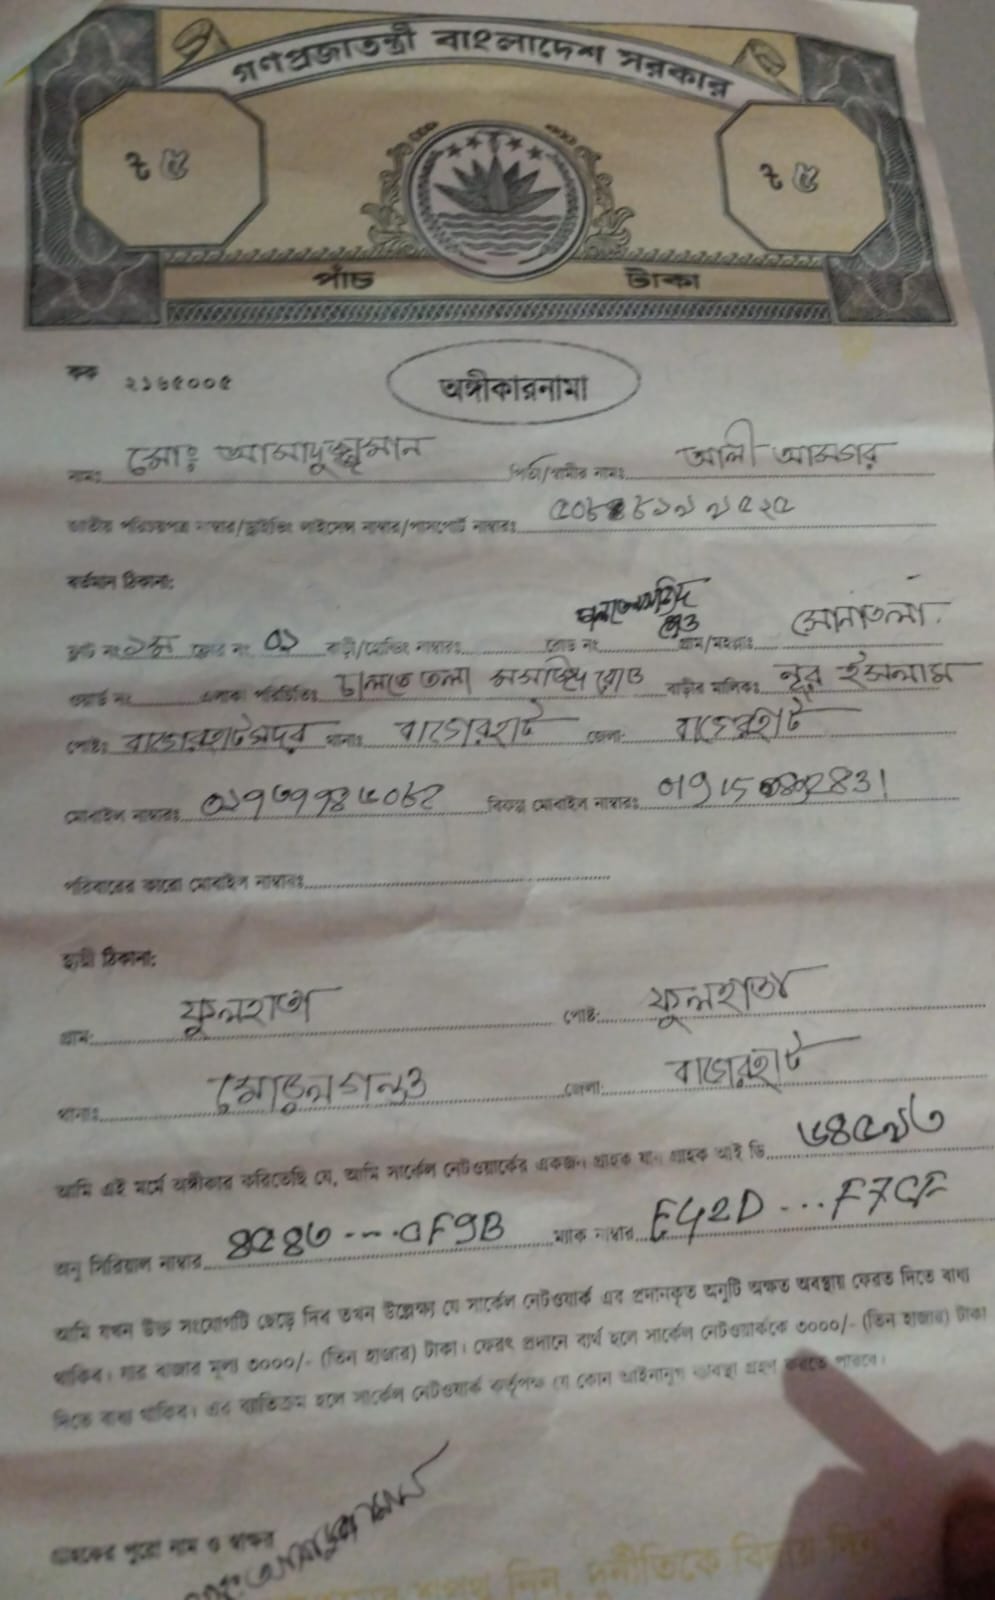 গণপ্রজাতন্ত্রী বাংলাদেশ সরকার
৳ ৫ ৳ ৫
পাঁচ টাকা
কক ২১৬৫০০৫
অঙ্গীকারনামা
নামঃ মোঃ আসাদুজ্জামান পিতা/স্বামীর নামঃ আলী আসগর
জাতীয় পরিচয়পত্র নাম্বার/ড্রাইভিং লাইসেন্স নাম্বার/পাসপোর্ট নাম্বারঃ
বর্তমান ঠিকানা:
ফ্লাট নং ১ম ফ্লোর নং ০১ বাড়ী/হোল্ডিং নাম্বারঃ রোড নং গ্রাম/মহল্লাঃ সোনাতলা
ওয়ার্ড নং এলাকা পরিচিতিঃ চালতে তলা মসজিদ রোড বাড়ীর মালিকঃ নূর ইসলাম
পোষ্টঃ বাগেরহাট সদর থানাঃ বাগেরহাট জেলা: বাগেরহাট
মোবাইল নাম্বারঃ বিকল্প মোবাইল নাম্বারঃ
পরিবারের কারো মোবাইল নাম্বারঃ
স্থায়ী ঠিকানা:
গ্রাম: ফুলহাতা পোষ্ট: ফুলহাতা
থানাঃ মোড়েলগঞ্জ জেলা: বাগেরহাট
আমি এই মর্মে অঙ্গীকার করিতেছি যে, আমি সার্কেল নেটওয়ার্কের একজন গ্রাহক যার গ্রাহক আই ডি ৬৪৫৯৩
অনু সিরিয়াল নাম্বার ম্যাক নাম্বার E42D ... F7CF
আমি যখন উক্ত সংযোগটি ছেড়ে দিব তখন উল্লেক্ষ্য যে সার্কেল নেটওয়ার্ক এর প্রদানকৃত অনুটি অক্ষত অবস্থায় ফেরত দিতে বাধ্য
থাকিব। যার বাজার মূল্য ৩০০০/- (তিন হাজার) টাকা। ফেরৎ প্রদানে ব্যর্থ হলে সার্কেল নেটওয়ার্ককে ৩০০০/- (তিন হাজার) টাকা
দিতে বাধ্য থাকিব। এর ব্যতিক্রম হলে সার্কেল নেটওয়ার্ক কর্তৃপক্ষ যে কোন আইনানুগ ব্যবস্থা গ্রহণ করতে পারবে।
গ্রাহকের পুরো নাম ও স্বাক্ষর
মোঃ আসাদুজ্জামান
শপথ নিন, দুর্নীতিকে বিদায় দিন